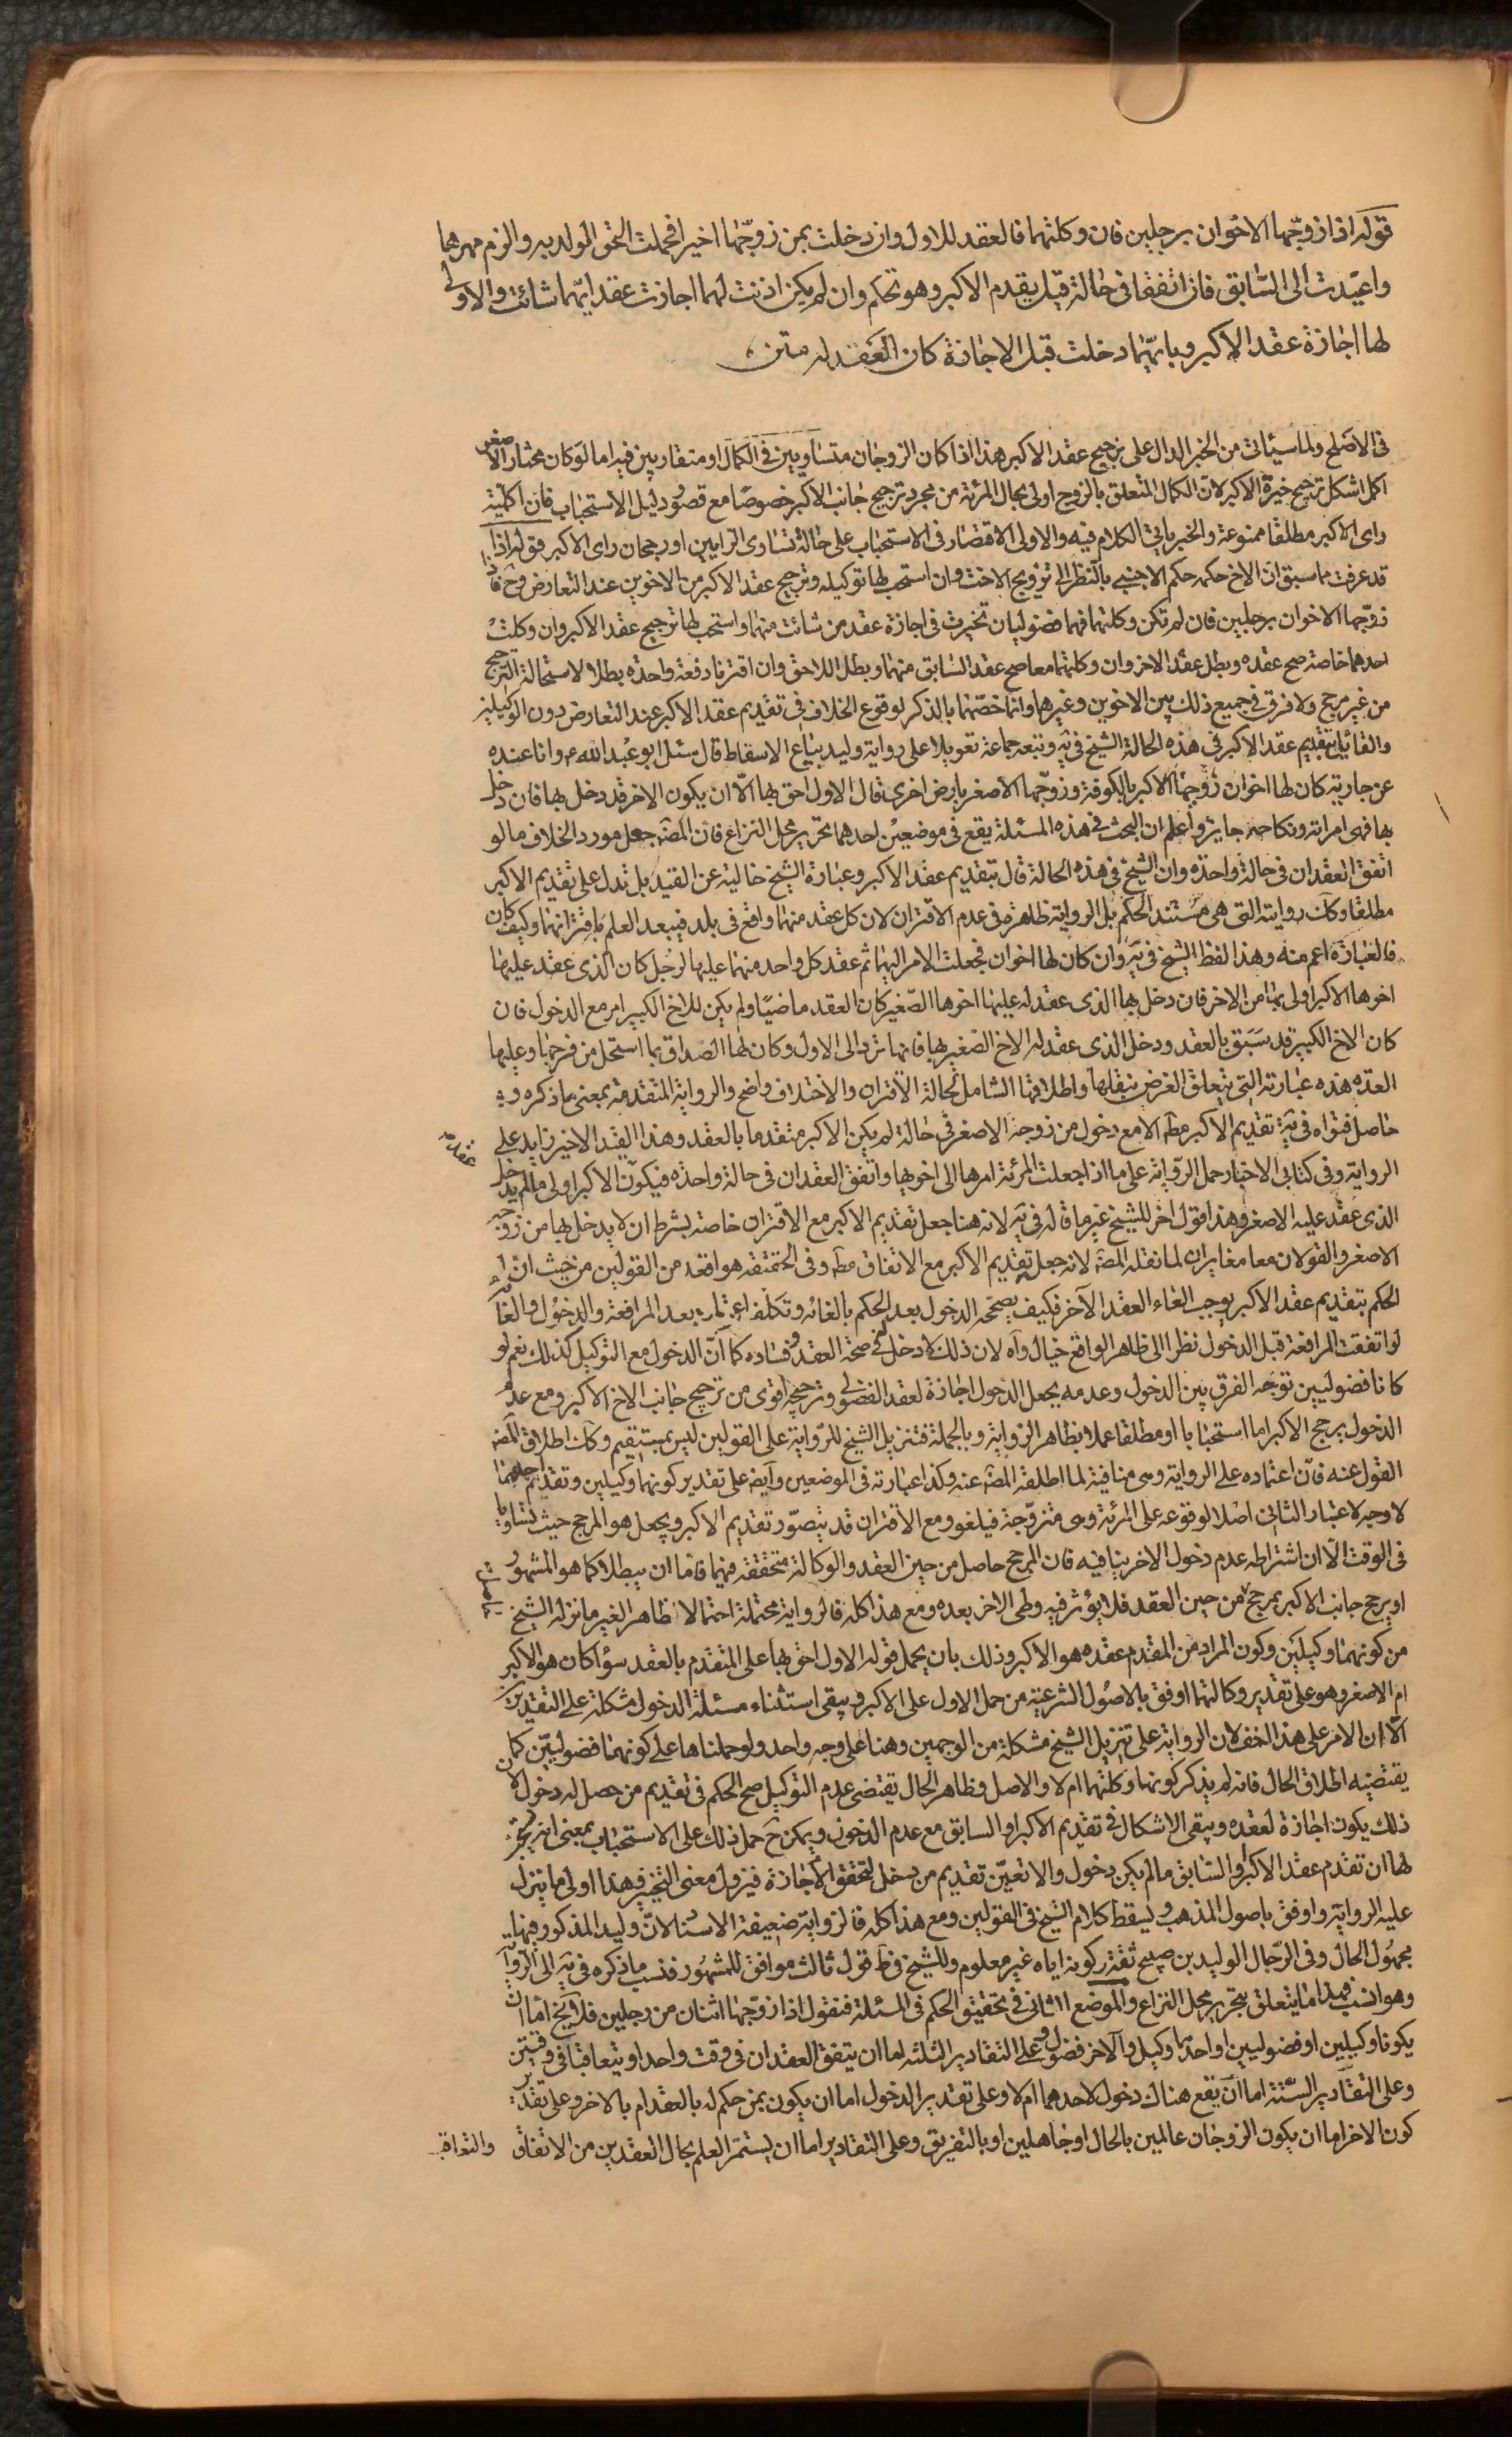 قوله اذا زوّجها الاخوان برجلين فان وكلتهما فالعقد للاول وان دخلت بمن زوجها اخيرا فحملت الحق الولد به والزم مهرها
واعيدت الى السّابق فان اتفقا فى حالة قيل يقدم الاكبر وهو تحكم وان لم يكن اذنت لهما اجازت عقد ايّهما شائت والاولى
لها اجازة عقد الاكبر وبايّهما دخلت قبل الاجازة كان العقد له متن
فى الاصلح ولما سيئاتى من الخبر الدال على ترجيح عقد الاكبر هذا اذا كان الزوجان متساويين فى الكمال او متقاربين فيه اما لو كان مختار الاصغر
اكمل اشكل ترجيح خيرة الاكبر لان الكمال المتعلق بالزوج اولى بحال المرئة من مجرد ترجيح جانب الاكبر خصوصًا مع قصور دليل الاستحباب فان اكملية
راى الاكبر مطلقا ممنوعة والخبر ياتى الكلام فيه والاولى الاقتصار فى الاستحباب على حالة تساوى الرايين او رجحان راى الاكبر قوله اذا
قد عرفت مما سبق ان الاخ حكمه حكم الاجنبى بالنظر الى تزويج الاخت وان استحب لها توكيله وترجيح عقد الاكبر من الاخوين عند التعارض وح فاذا
زوّجها الاخوان برجلين فان لم تكن وكلتهما فهما فضوليان تخيرت فى اجازة عقد من شائت منهما واستحب لها ترجيح عقد الاكبر وان وكلتْ
احدهما خاصة صح عقده وبطل عقد الاخر وان وكلتهما معا صح عقد السابق منهما وبطل اللاحق وان اقترنا دفعة واحدة بطلا لاستحالة الترجيح
من غير مرجح ولا فرق فى جميع ذلك بين الاخوين وغيرهما وانما خصّهما بالذكر لوقوع الخلاف فى تقديم عقد الاكبر عند التعارض دون الوكيلين
والقائل بتقديم عقد الاكبر فى هذه الحالة الشيخ فى يه وتبعه جماعة تعويلا على رواية وليد بياع الاسقاط قال سئل ابو عبد الله ع وانا عنده
عن جارية كان لها اخوان زوجها الاكبر بالكوفة وزوّجها الاصغر بارض اخرى قال الاول احق بها الّا ان يكون الاخر قد دخل بها فان دخل
بها فهى امراته ونكاحه جايز واعلم ان البحث فى هذه المسئلة يقع فى موضعين احدهما تحرير محل النزاع فان المصَ جعل مورد الخلاف ما لو
اتفق العقدان فى حالة واحدة وان الشيخ فى هذه الحالة قال بتقديم عقد الاكبر وعبارة الشيخ خالية عن القيد بل تدل على تقديم الاكبر
مطلقا وكك روايته التى هى مستند الحكم بل الرواية ظاهرة فى عدم الاقتران لان كل عقد منهما واقع فى بلد فيبعد العلم باقترانهما وكيف كان
فالعبارة اعم منه وهذا لفظ الشيخ فى يه وان كان لها اخوان فجعلت الامر اليهما ثم عقد كل واحد منهما عليها لرجل كان الذى عقد عليها
اخوها الاكبر اولى بها من الاخر فان دخل بها الذى عقد له عليها اخوها الصّغير كان العقد ماضيًا ولم يكن للاخ الكبير امر مع الدخول فان
كان الاخ الكبير قد سَبَق بالعقد ودخل الذى عقد له الاخ الصّغير بها فانها ترد الى الاول وكان لها الصّداق بما استحل من فرجها وعليها
العدة هذه عبارته التى يتعلق الغرض بنقلها واطلاقها الشامل لحالة الاقتران والاختلاف واضح والرواية المتقدمة بمعنى ما ذكره و
حاصل فتواه فى يه تقديم الاكبر مطَ الا مع دخول من زوجه الاصغر فى حالة لم يكن الاكبر متقدما بالعقد وهذا القيد الاخير زايد على
عقده
الرواية وفى كتابى الاخبار حمل الرّواية على ما اذا جعلت المرئة امرها الى اخويها واتفق العقدان فى حالة واحدة فيكون الاكبر اولى ما لم يدخل
الذى عقد عليه الاصغر وهذا قول اخر للشيخ غير ما قاله فى يه لانه هنا جعل تقديم الاكبر مع الاقتران خاصة بشرط ان لا يدخل بها من زوّجه
الاصغر والقولان معا مغايران لما نقله المصَ لانه جعل تقديم الاكبر مع الاتفاق مطَ وفى الحقيقة هو اقعد من القولين من حيث ان
الحكم بتقديم عقد الاكبر يوجب الغاء العقد الآخر فكيف يصححه الدخول بعد الحكم بالغائه وتكلف اعتباره بعد المرافعة والدخول والغائه
لو اتفقت المرافعة قبل الدخول نظرا الى ظاهر الواقع خيال واه لان ذلك لا دخل له فى صحة العقد وفساده كما انّ الدخول مع التوكيل كذلك نعم لو
كانا فضوليين توجه الفرق بين الدخول وعدمه بجعل الدخول اجازة لعقد الفضولى وترجيحه اقوى من ترجيح جانب الاخ الاكبر ومع عدم
الدخول يرجح الاكبر اما استحبابا او مطلقا عملا بظاهر الرواية وبالجملة فتنزيل الشيخ للرّواية على القولين ليس بمستقيم وكك اطلاق المصَ
القول عنه فان اعتماده على الرواية وهى منافية لما اطلقه المصَ عنه وكذا عبارته فى الموضعين وايضَ على تقدير كونهما وكيلين وتقدم احدهما
لا وجه لاعتبار الثانى اصلا لوقوعه على المرئة وهى متزوّجة فيلغو ومع الاقتران قد يتصوّر تقديم الاكبر ويجعل هو المرجح حيث تساويا
فى الوقت الّا ان اشتراطه عدم دخول الاخر ينافيه فان المرجح حاصل من حين العقد والوكالة متحققة فيهما فاما ان يبطلا كما هو المشهور
او يرجح جانب الاكبر بمرجح من حين العقد فلا يؤثر فيه وطى الاخر بعده ومع هذا كله فالرواية محتملة احتمالا ظاهرا لغير ما نزله الشيخ
من كونهما وكيلين وكون المراد من المقدم عقده هو الاكبر وذلك بان يحمل قوله الاول احق بها على المتقدم بالعقد سواء كان هو الاكبر
ام الاصغر وهو على تقدير وكالتهما اوفق بالاصُول الشرعية من حمل الاول على الاكبر ويبقى استثناء مسئلة الدخول مشكلة على التقديرين
الّا ان الامر على هذا اخف لان الرواية على تنزيل الشيخ مشكلة من الوجهين وهنا على وجه واحد ولو حملناها على كونهما فضوليّين كما
يقتضيه اطلاق الحال فانه لم يذكر كونها وكلتهما ام لا والاصل وظاهر الحال يقتضى عدم التوكيل صح الحكم فى تقديم من حصل له دخول لان
ذلك يكون اجازة لعقده ويبقى الاشكال فى تقديم الاكبر او السابق مع عدم الدخول ويمكن ح حمل ذلك على الاستحباب بمعنى انه يستحب
لها ان تقدم عقد الاكبر او السّابق ما لم يكن دخول والا تعيّن تقديم من دخل لتحقق الاجازة فيزول معنى التخيير وهذا اولى ما ينزل
عليه الرواية واوفق باصول المذهب ويسقط كلام الشيخ فى القولين ومع هذا كله فالرواية ضعيفة الاسناد لانّ وليد المذكور فيها
مجهول الحال وفى الرّجال الوليد بن صبيح ثقة وكونه اياه غير معلوم وللشيخ فى ط قول ثالث موافق للمشهور فنسب ما ذكره فى يه الى الرواية
وهو انسب فهذا ما يتعلق بتحرير محل النزاع والموضع الثانى فى تحقيق الحكم فى المسئلة فنقول اذا زوّجها اثنان من رجلين فلا يخ اما ان
يكونا وكيلين او فضوليين او احدهما وكيل والآخر فضولى وعلى التقادير الثلثه اما ان يتفق العقدان فى وقت واحد او يتعاقبا فى وقتين
وعلى التقادير السّتة اما ان يقع هناك دخول لاحدهما ام لا وعلى تقدير الدخول اما ان يكون بمن حكم له بالعقد ام بالاخر وعلى تقدير
كون الاخر اما ان يكون الزوجان عالمين بالحال او جاهلين او بالتفريق وعلى التقادير اما ان يستمّر العلم بحال العقدين من الاتفاق والتعاقب